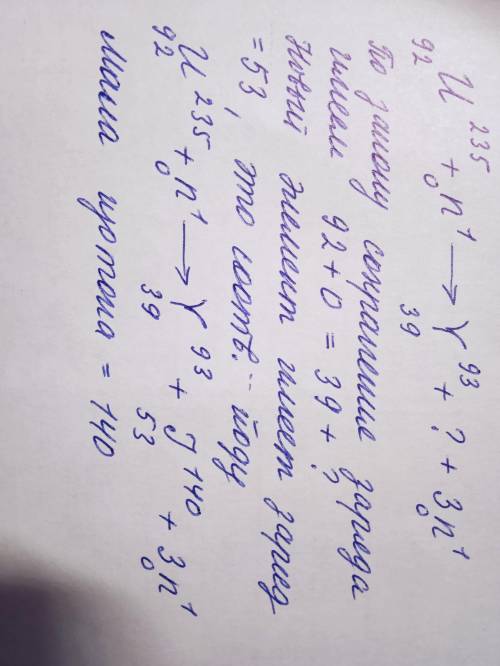 ₉₂U²³⁵ + ₀n¹ → ₃₉Y⁹³ + ? + 3₀n¹
По закону сохранение заряда
имеем 92 + 0 = 39 + ?
Новый элемент имеет заряд
= 53, это соотв. йоду
₉₂U²³⁵ + ₀n¹ → ₃₉Y⁹³ + ₅₃J¹⁴⁰ + 3₀n¹
масса изотопа = 140